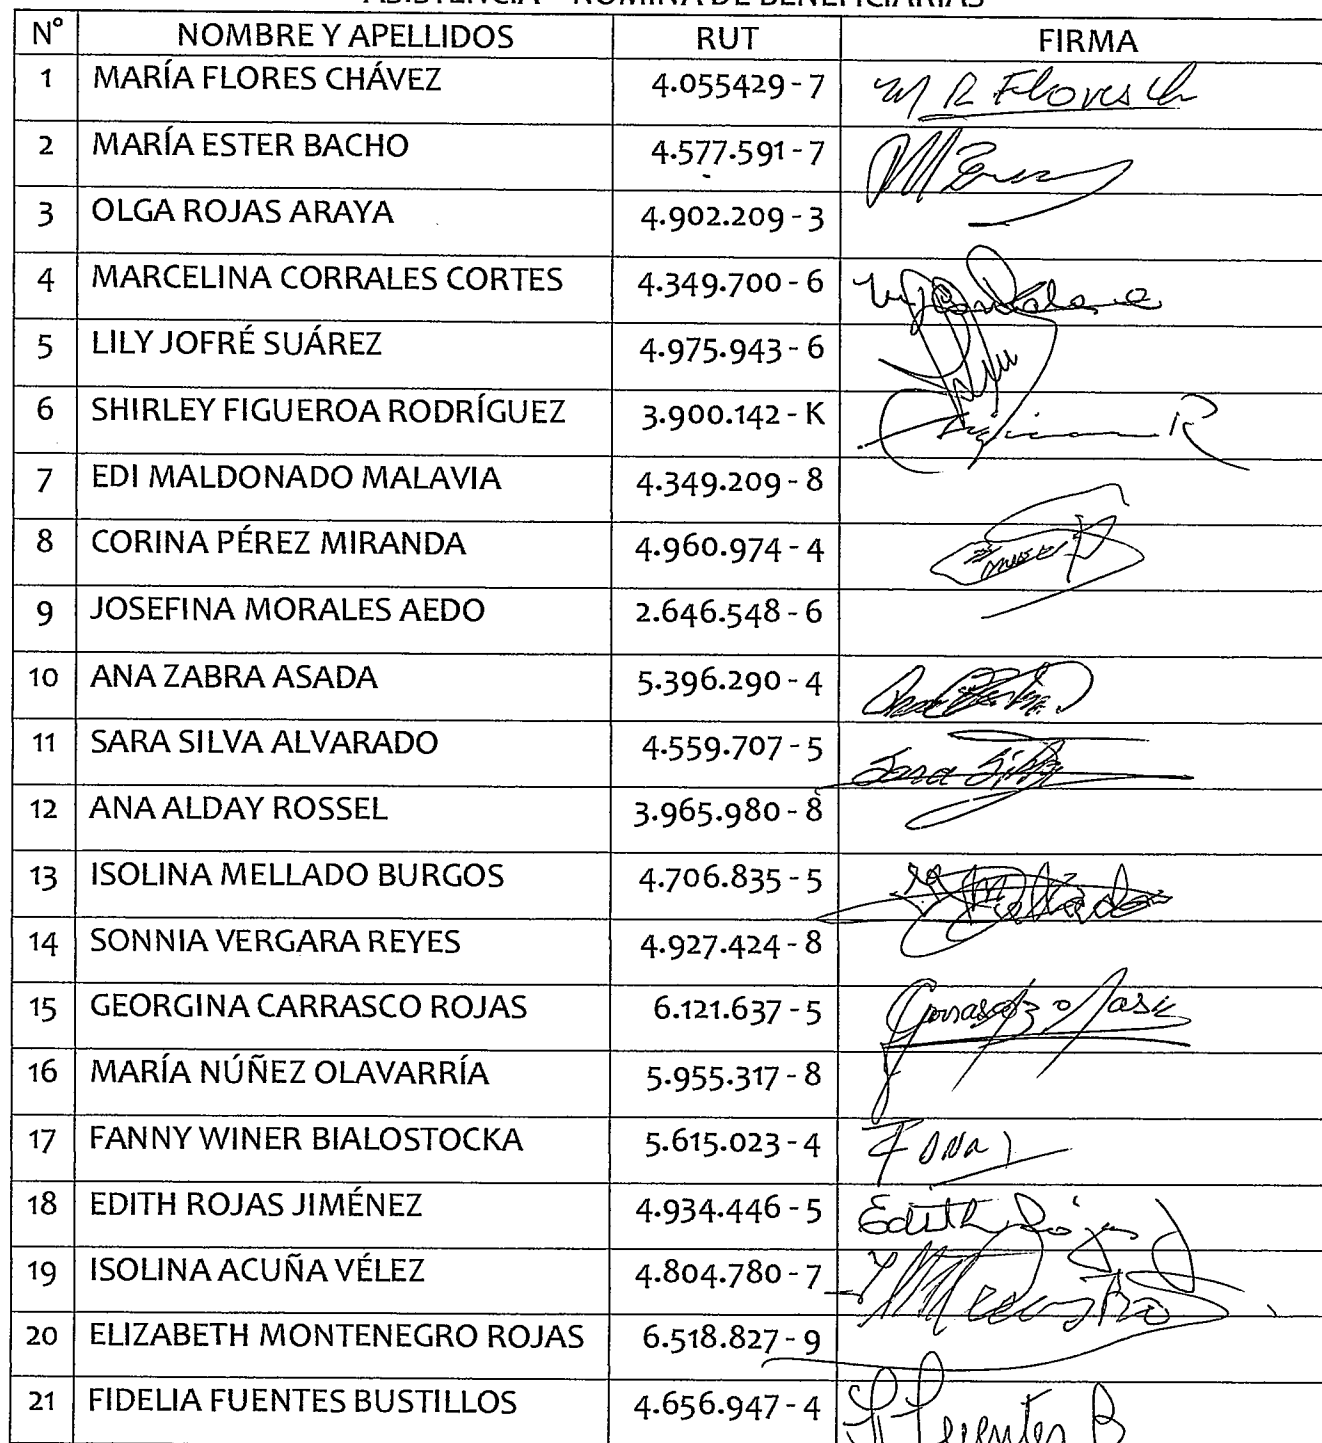 ASISTENCIA – NÓMINA DE BENEFICIARIAS
N° NOMBRE Y APELLIDOS RUT FIRMA
1 MARÍA FLORES CHÁVEZ 4.055429 - 7 M R Flores Ch
2 MARÍA ESTER BACHO 4.577.591 - 7
3 OLGA ROJAS ARAYA 4.902.209 - 3
4 MARCELINA CORRALES CORTES 4.349.700 - 6
5 LILY JOFRÉ SUÁREZ 4.975.943 - 6
6 SHIRLEY FIGUEROA RODRÍGUEZ 3.900.142 - K
7 EDI MALDONADO MALAVIA 4.349.209 - 8
8 CORINA PÉREZ MIRANDA 4.960.974 - 4
9 JOSEFINA MORALES AEDO 2.646.548 - 6
10 ANA ZABRA ASADA 5.396.290 - 4
11 SARA SILVA ALVARADO 4.559.707 - 5 Sara Silva
12 ANA ALDAY ROSSEL 3.965.980 - 8
13 ISOLINA MELLADO BURGOS 4.706.835 - 5
14 SONNIA VERGARA REYES 4.927.424 - 8
15 GEORGINA CARRASCO ROJAS 6.121.637 - 5
16 MARÍA NÚÑEZ OLAVARRÍA 5.955.317 - 8
17 FANNY WINER BIALOSTOCKA 5.615.023 - 4
18 EDITH ROJAS JIMÉNEZ 4.934.446 - 5 Edith Rojas J
19 ISOLINA ACUÑA VÉLEZ 4.804.780 - 7
20 ELIZABETH MONTENEGRO ROJAS 6.518.827 - 9
21 FIDELIA FUENTES BUSTILLOS 4.656.947 - 4 F Fuentes B